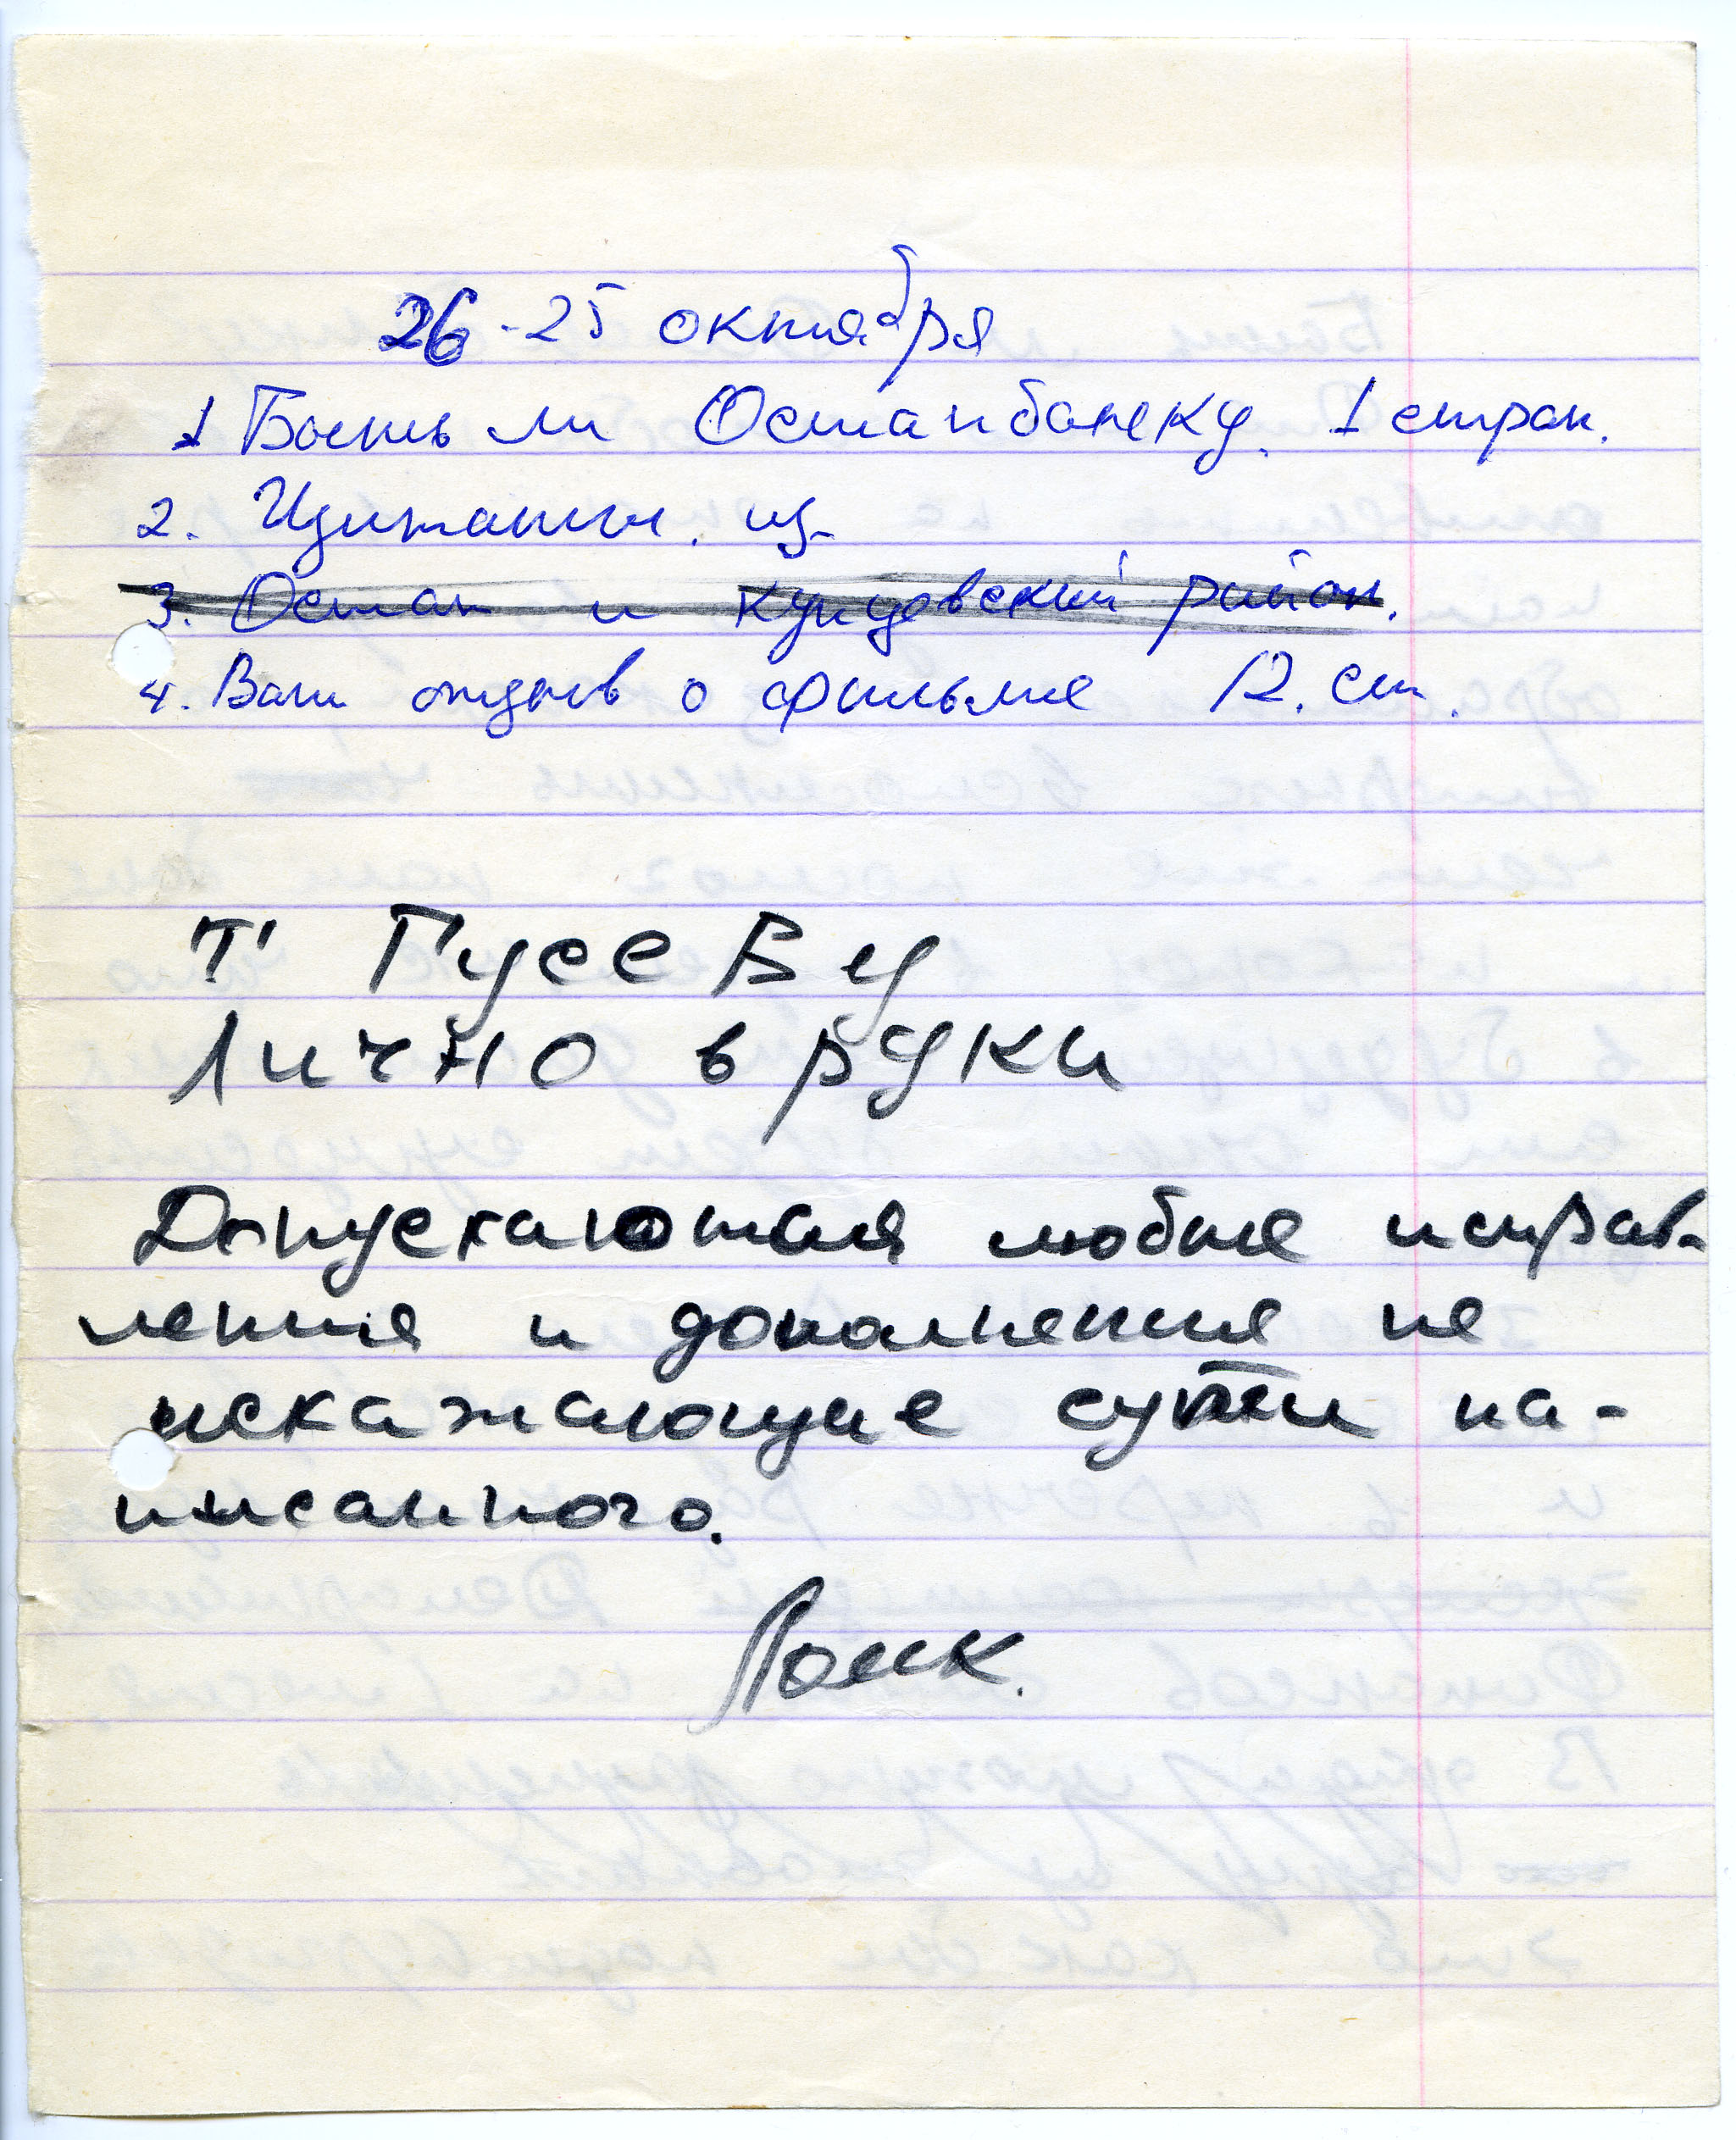 26-25 октября
1 Быть ли Остапбанеку. 1 стран.
2. Цитаты. из
3. Остап и Кунцевский район.
4. Ваш отзыв о фильме 12. ст.
Т. Гусеву
Лично в руки
Допускаются любые исправ-
ления и дополнения не
искажающие сути на-
писанного.